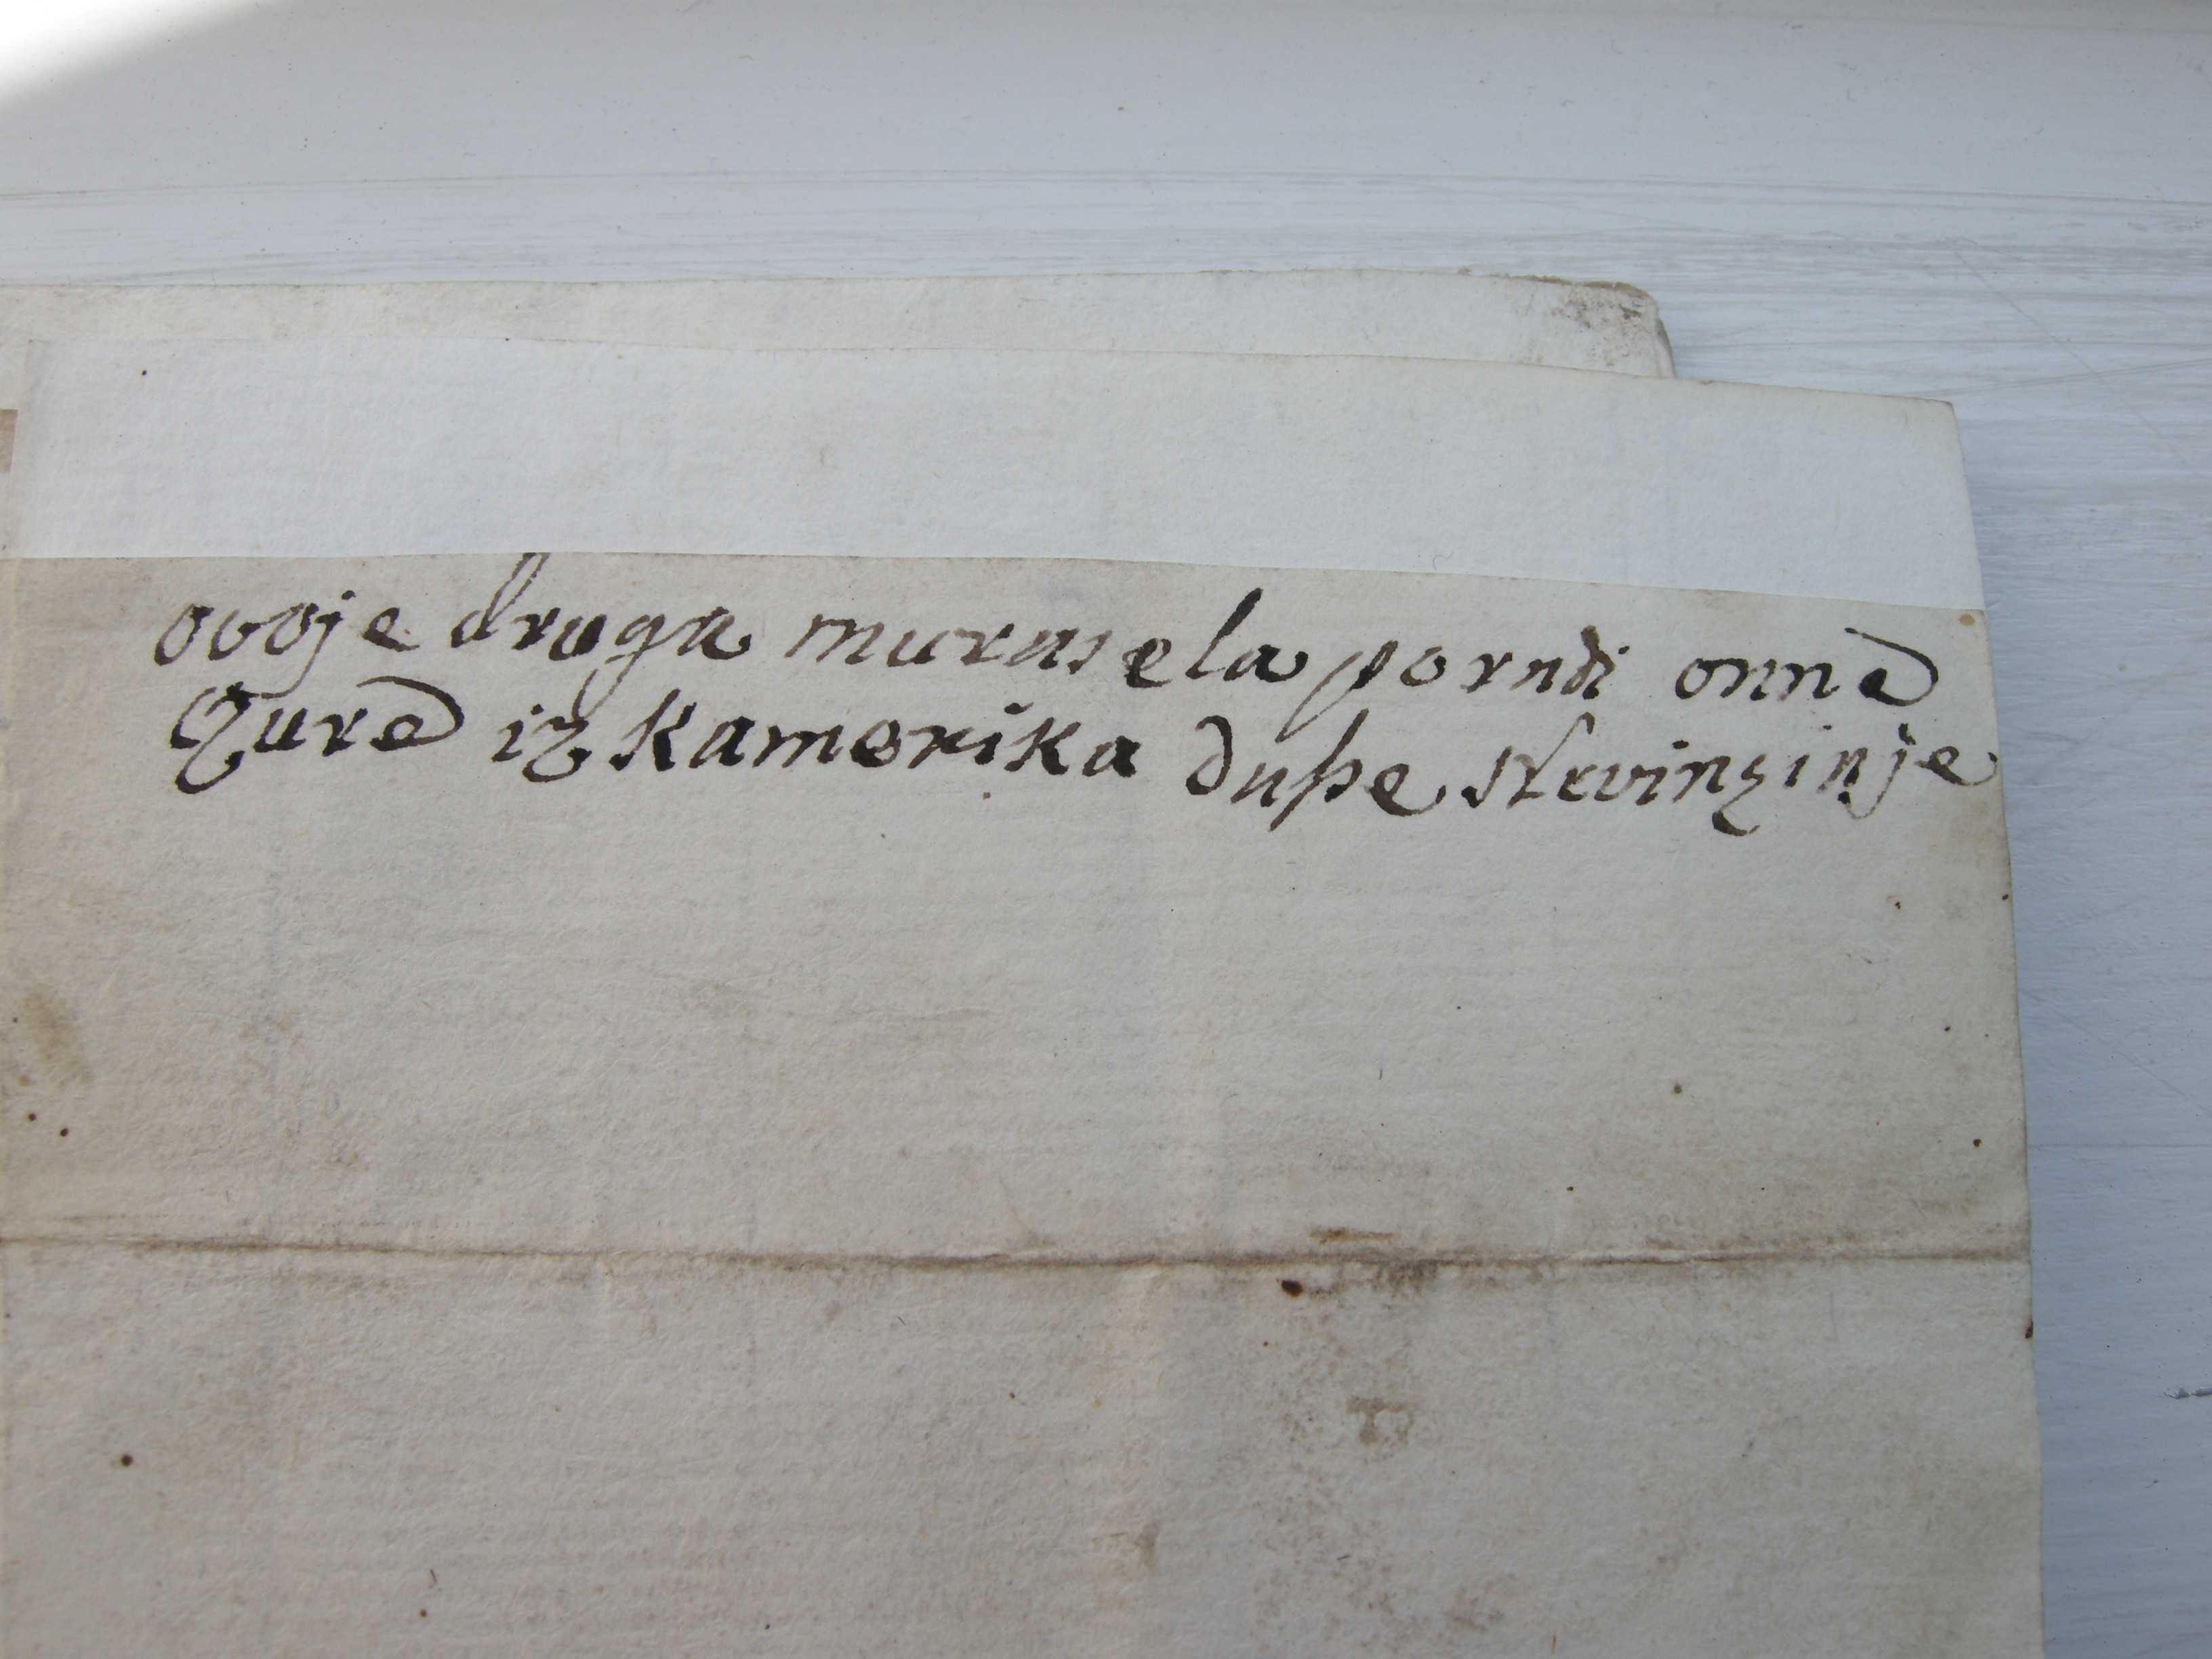 ovoje druga murasela poradi onne
Zure iz Kamerika duße stevinzinje